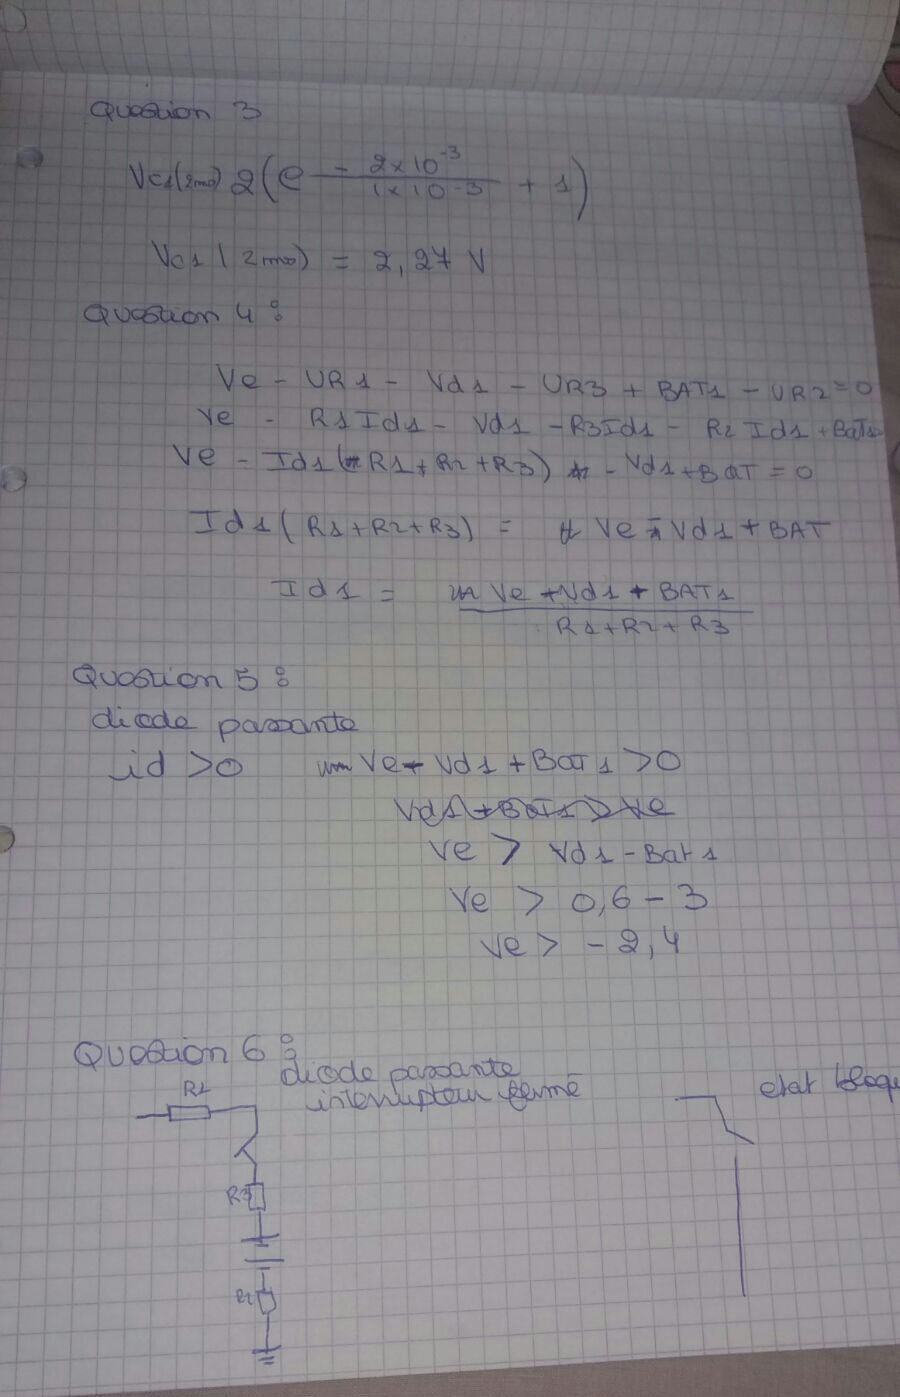 Question 3
Vc1(2ms) 2(e - 2x10^-3 / 1x10^-3 + 1)
Vc1 (2ms) = 2,27 V
Question 4 :
Ve - UR1 - Vd1 - UR3 + BAT1 - UR2 = 0
Ve - R1Id1 - Vd1 - R3Id1 - R2 Id1 + BaT1
Ve - Id1(R1+R2+R3) - Vd1+BAT = 0
Id1(R1+R2+R3) = Ve - Vd1 + BAT
Id1 = Ve + Vd1 + BAT1 / R1+R2+R3
Question 5 :
diode passante
id >0 Ve - Vd1 + BAT1 >0
Vd1 + BAT1 > Ve
Ve > Vd1 - Bat1
Ve > 0,6 - 3
Ve > - 2,4
Question 6 :
diode passante
interrupteur fermé
etat bloqu
R1
R3
R2